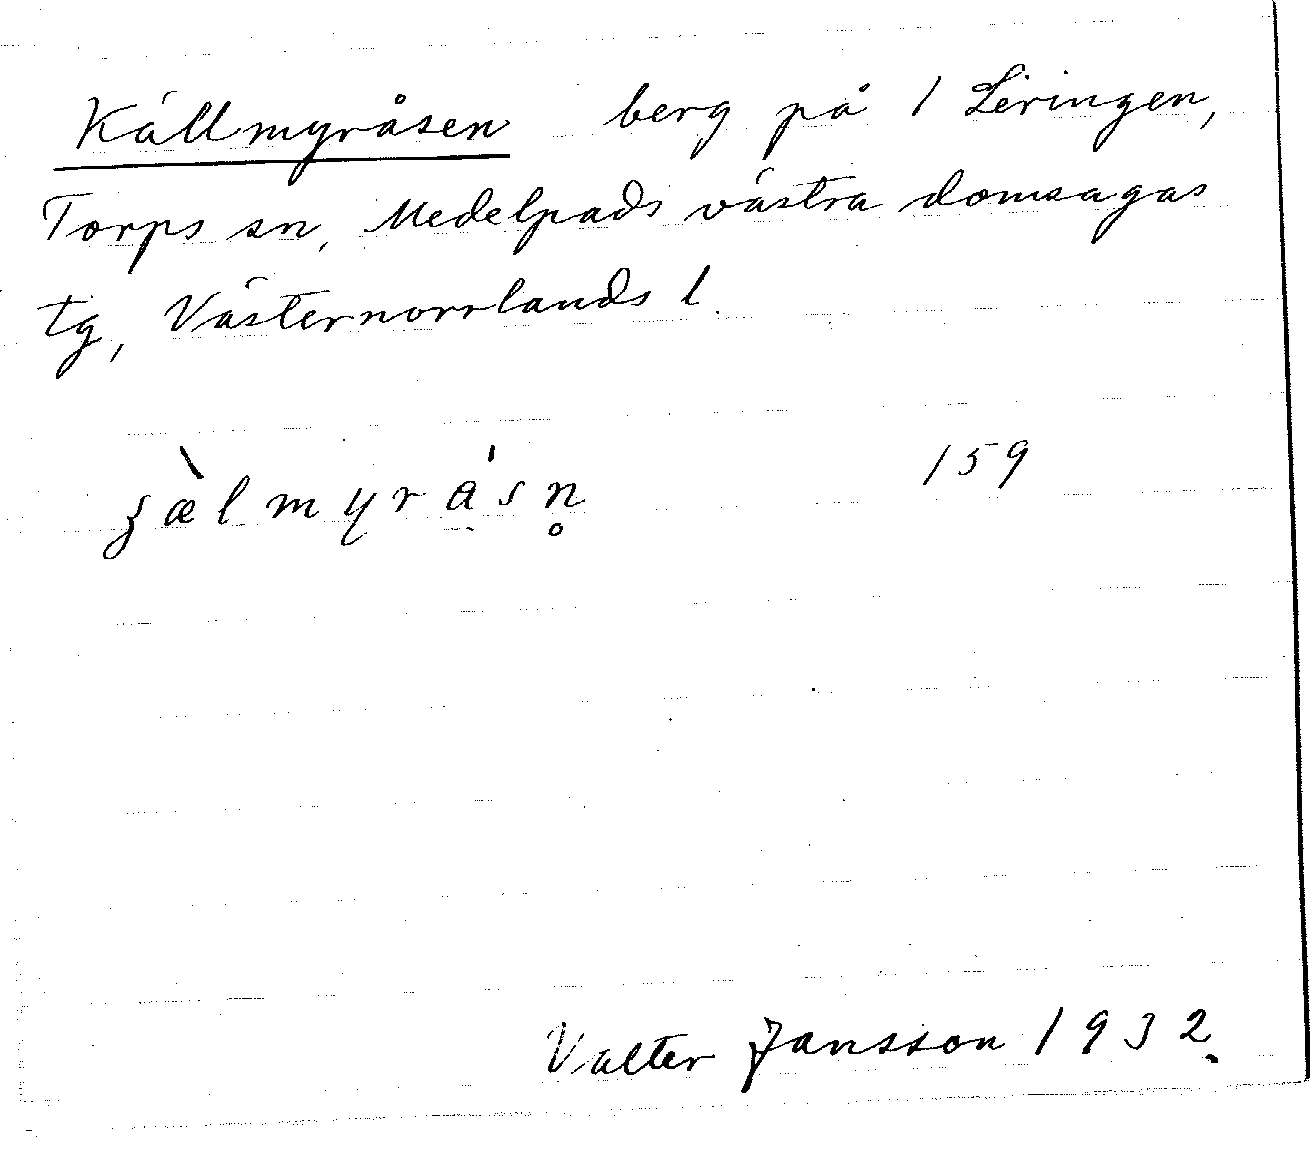 Källmyråsen berg på 1 Leringen,
Torps sn, Medelpads västra domsagas
tg, Västernorrlands l.
159
Valter Jansson 1932.